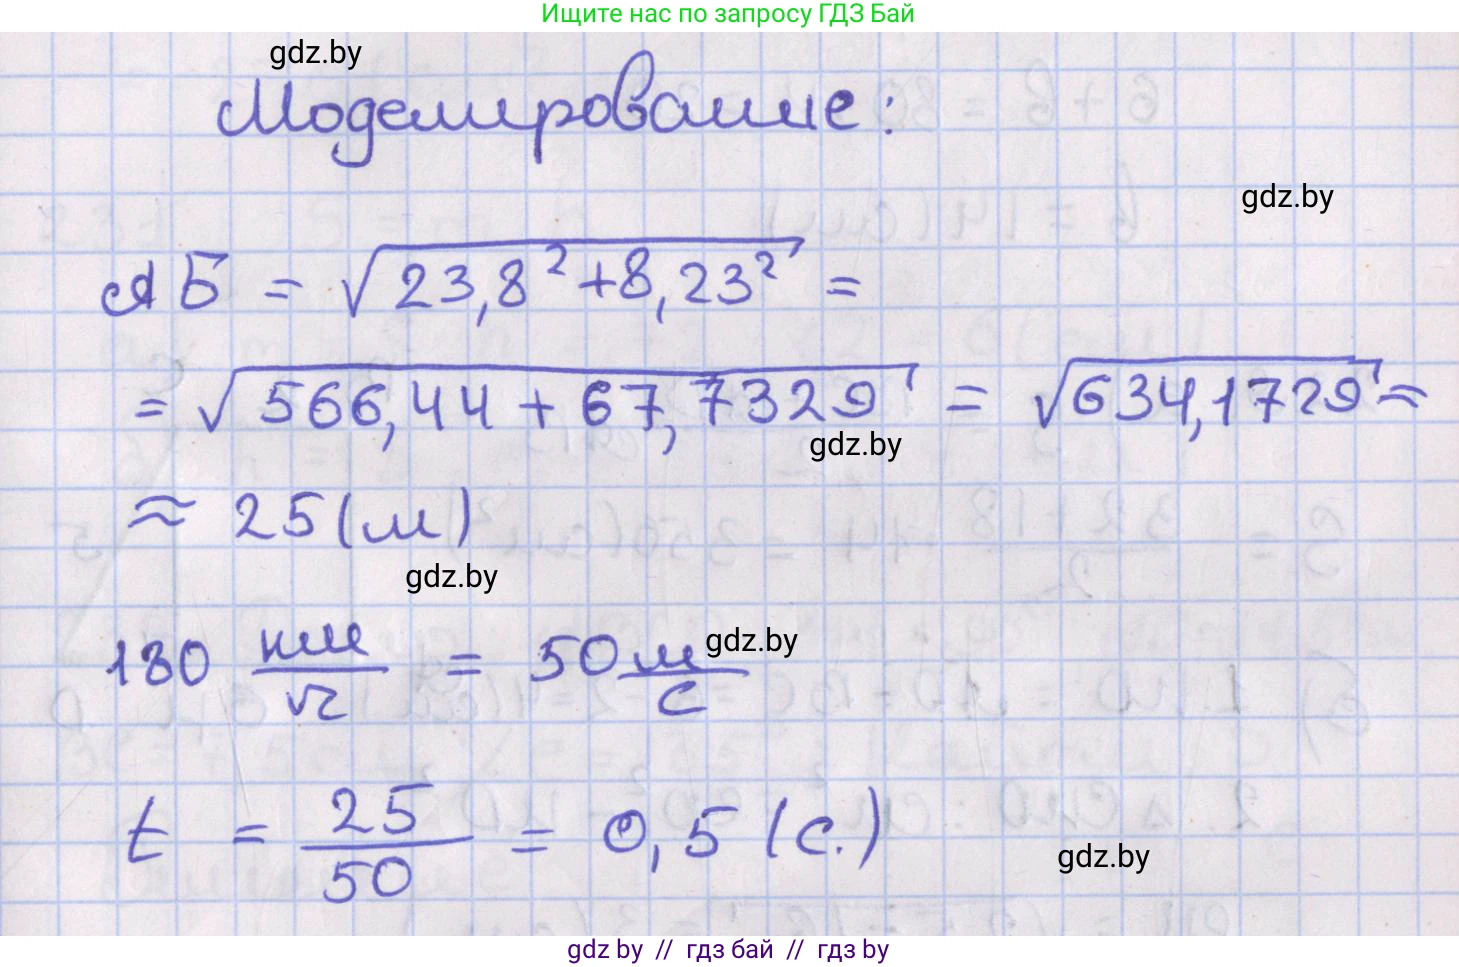 Ищите нас по запросу ГДЗ Бай
gdz.by
Моделирование:
gdz.by
АБ = √(23,8² + 8,23²) =
= √(566,44 + 67,7329) = √634,1729 =
gdz.by
≈ 25 (м)
gdz.by
180 км/ч = 50 м/с
gdz.by
t = 25/50 = 0,5 (с.)
gdz.by
gdz by // гдз бай // гдз by